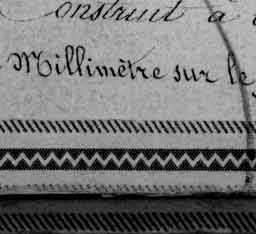 Construit à
Millimètre sur le